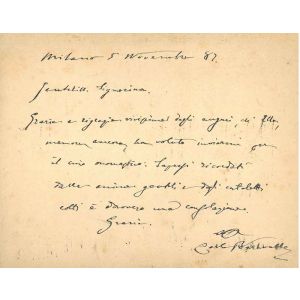 Milano 5 Novembre 87.
Gentiliss. Signorina,
Grazie e grazie vivissime degli auguri di Ella,
memore ancora, ha voluto inviarmi per
il mio onomastico. Sapersi ricordati
dalle anime gentili e dagli intelletti
colti è davvero una consolazione.
Grazie.